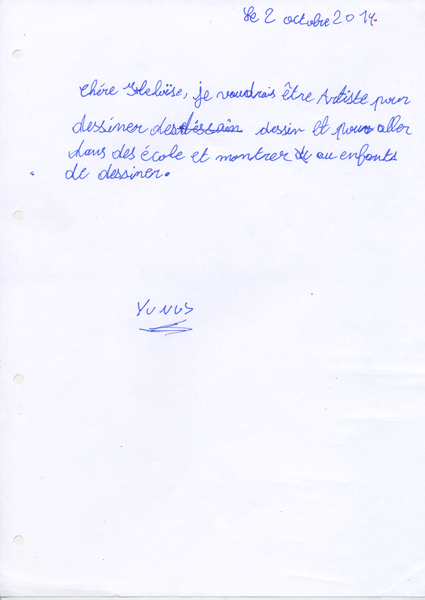 Le 2 octobre 2014.
Chére Héloïse, je voudrais être Artiste pour
dessiner des dessin Et pour aller
dans des école et montrer au enfants
de dessiner.
YUNUS